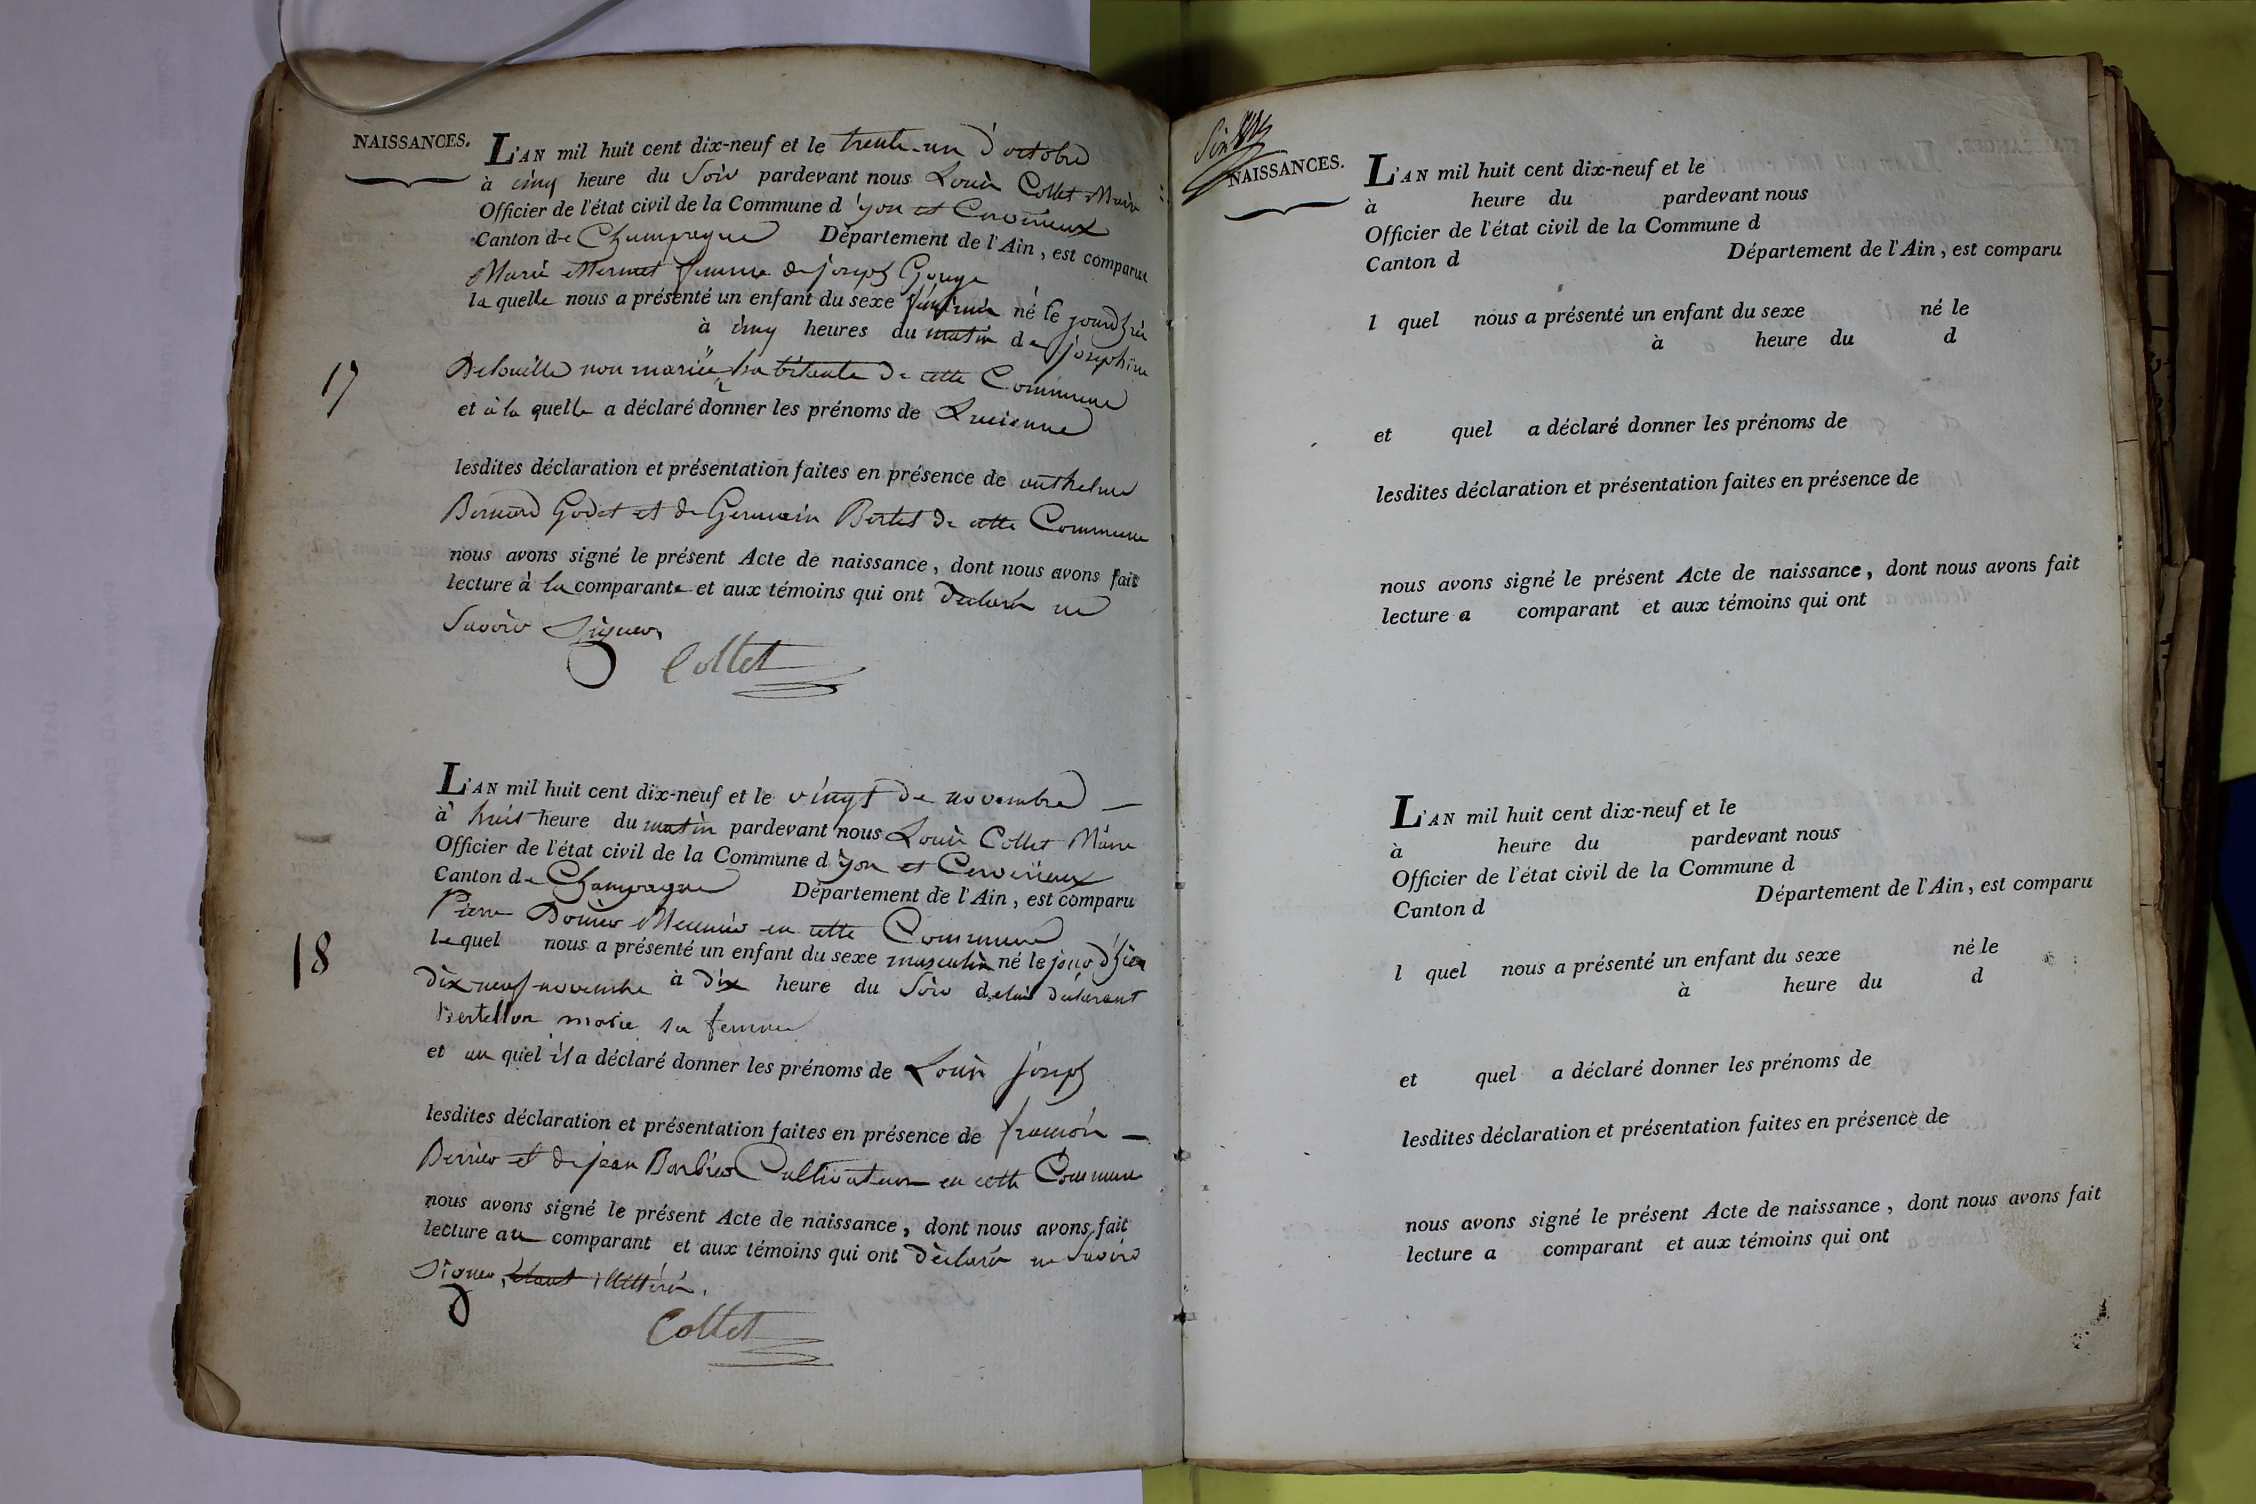 NAISSANCES.
L'AN mil huit cent dix-neuf et le trente-un d'octobre
à cinq heure du Soir pardevant nous Louis Collet Maire
Officier de l'état civil de la Commune d'yon et Cerverieux
Canton de Champagne Département de l'Ain, est comparue
Marie Mermet femme de joseph Gouge
la quelle nous a présenté un enfant du sexe féminin né le jourd'hui
à cinq heures du matin de josephine
non mariée habitante de cette Commune
17
et à la quelle a déclaré donner les prénoms de Lucienne
lesdites déclaration et présentation faites en présence de anthelme
Bernard Godet et de Germain Bertet de cette Commune
nous avons signé le présent Acte de naissance, dont nous avons fait
lecture à la comparante et aux témoins qui ont déclaré ne
Savoir Signer.
Collet
L'AN mil huit cent dix-neuf et le vingt de novembre
à huit heure du matin pardevant nous Louis Collet Maire
Officier de l'état civil de la Commune d'yon et Cerverieux
Canton de Champagne Département de l'Ain, est comparu
Pierre Meunier en cette Commune
18
lequel nous a présenté un enfant du sexe masculin né le jour d'hier
dix neuf novembre à dix heure du Soir de lui déclarant
Bertellon marie sa femme
et au quel il a déclaré donner les prénoms de Louis joseph
lesdites déclaration et présentation faites en présence de francois
Berrier et de jean Barbier Cultivateurs en cette Commune
nous avons signé le présent Acte de naissance, dont nous avons fait
lecture au comparant et aux témoins qui ont déclaré ne Savoir
Signer, étant illittéré.
Collet
NAISSANCES.
L'AN mil huit cent dix-neuf et le
à heure du pardevant nous
Officier de l'état civil de la Commune d
Canton d Département de l'Ain, est comparu
l quel nous a présenté un enfant du sexe né le
à heure du d
et quel a déclaré donner les prénoms de
lesdites déclaration et présentation faites en présence de
nous avons signé le présent Acte de naissance, dont nous avons fait
lecture a comparant et aux témoins qui ont
L'AN mil huit cent dix-neuf et le
à heure du pardevant nous
Officier de l'état civil de la Commune d
Canton d Département de l'Ain, est comparu
l quel nous a présenté un enfant du sexe né le
à heure du d
et quel a déclaré donner les prénoms de
lesdites déclaration et présentation faites en présence de
nous avons signé le présent Acte de naissance, dont nous avons fait
lecture a comparant et aux témoins qui ont